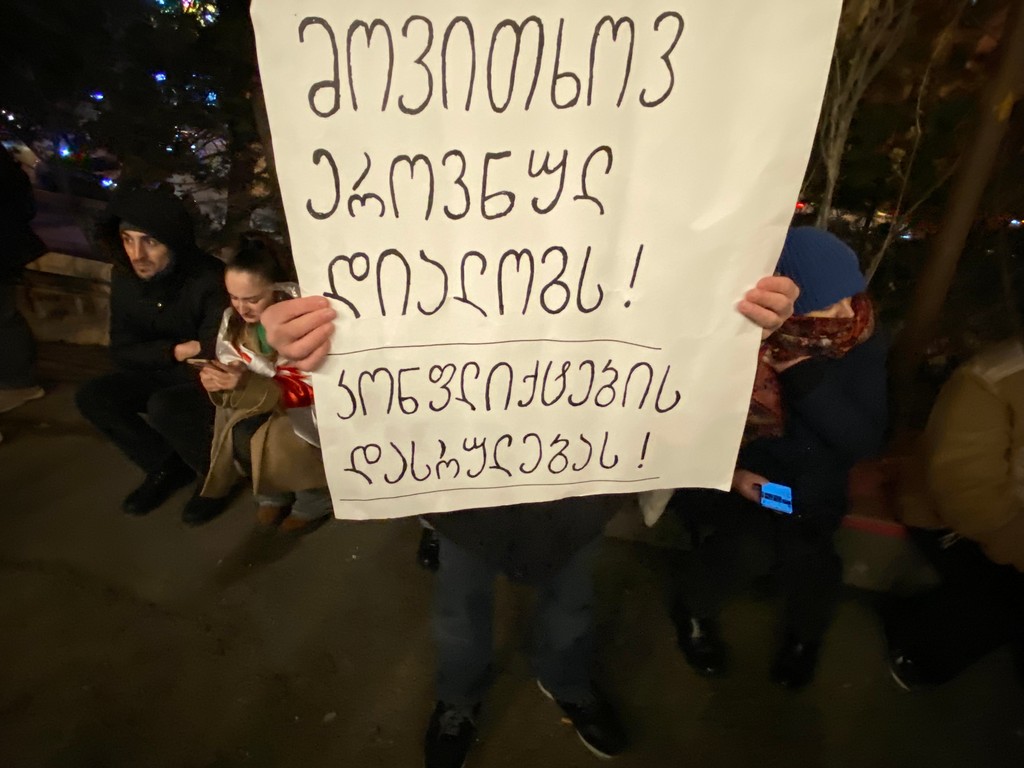 მოვითხოვ
ეროვნულ
დიალოგს!
კონფლიქტების
დასრულებას!